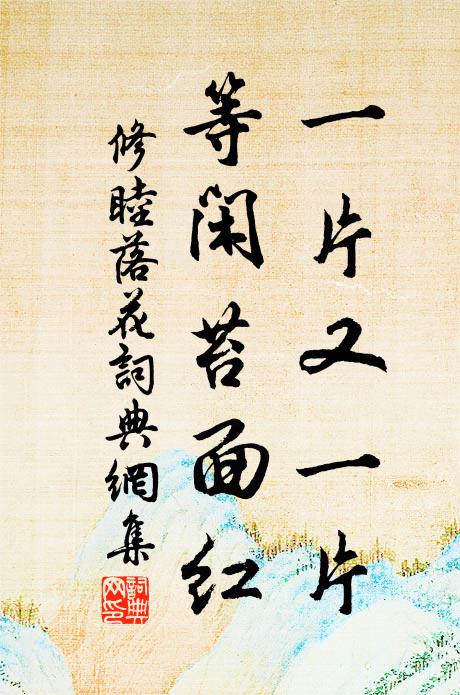 一片又一片
等閑苔面紅
修睦落花詞典網集
詞典網印